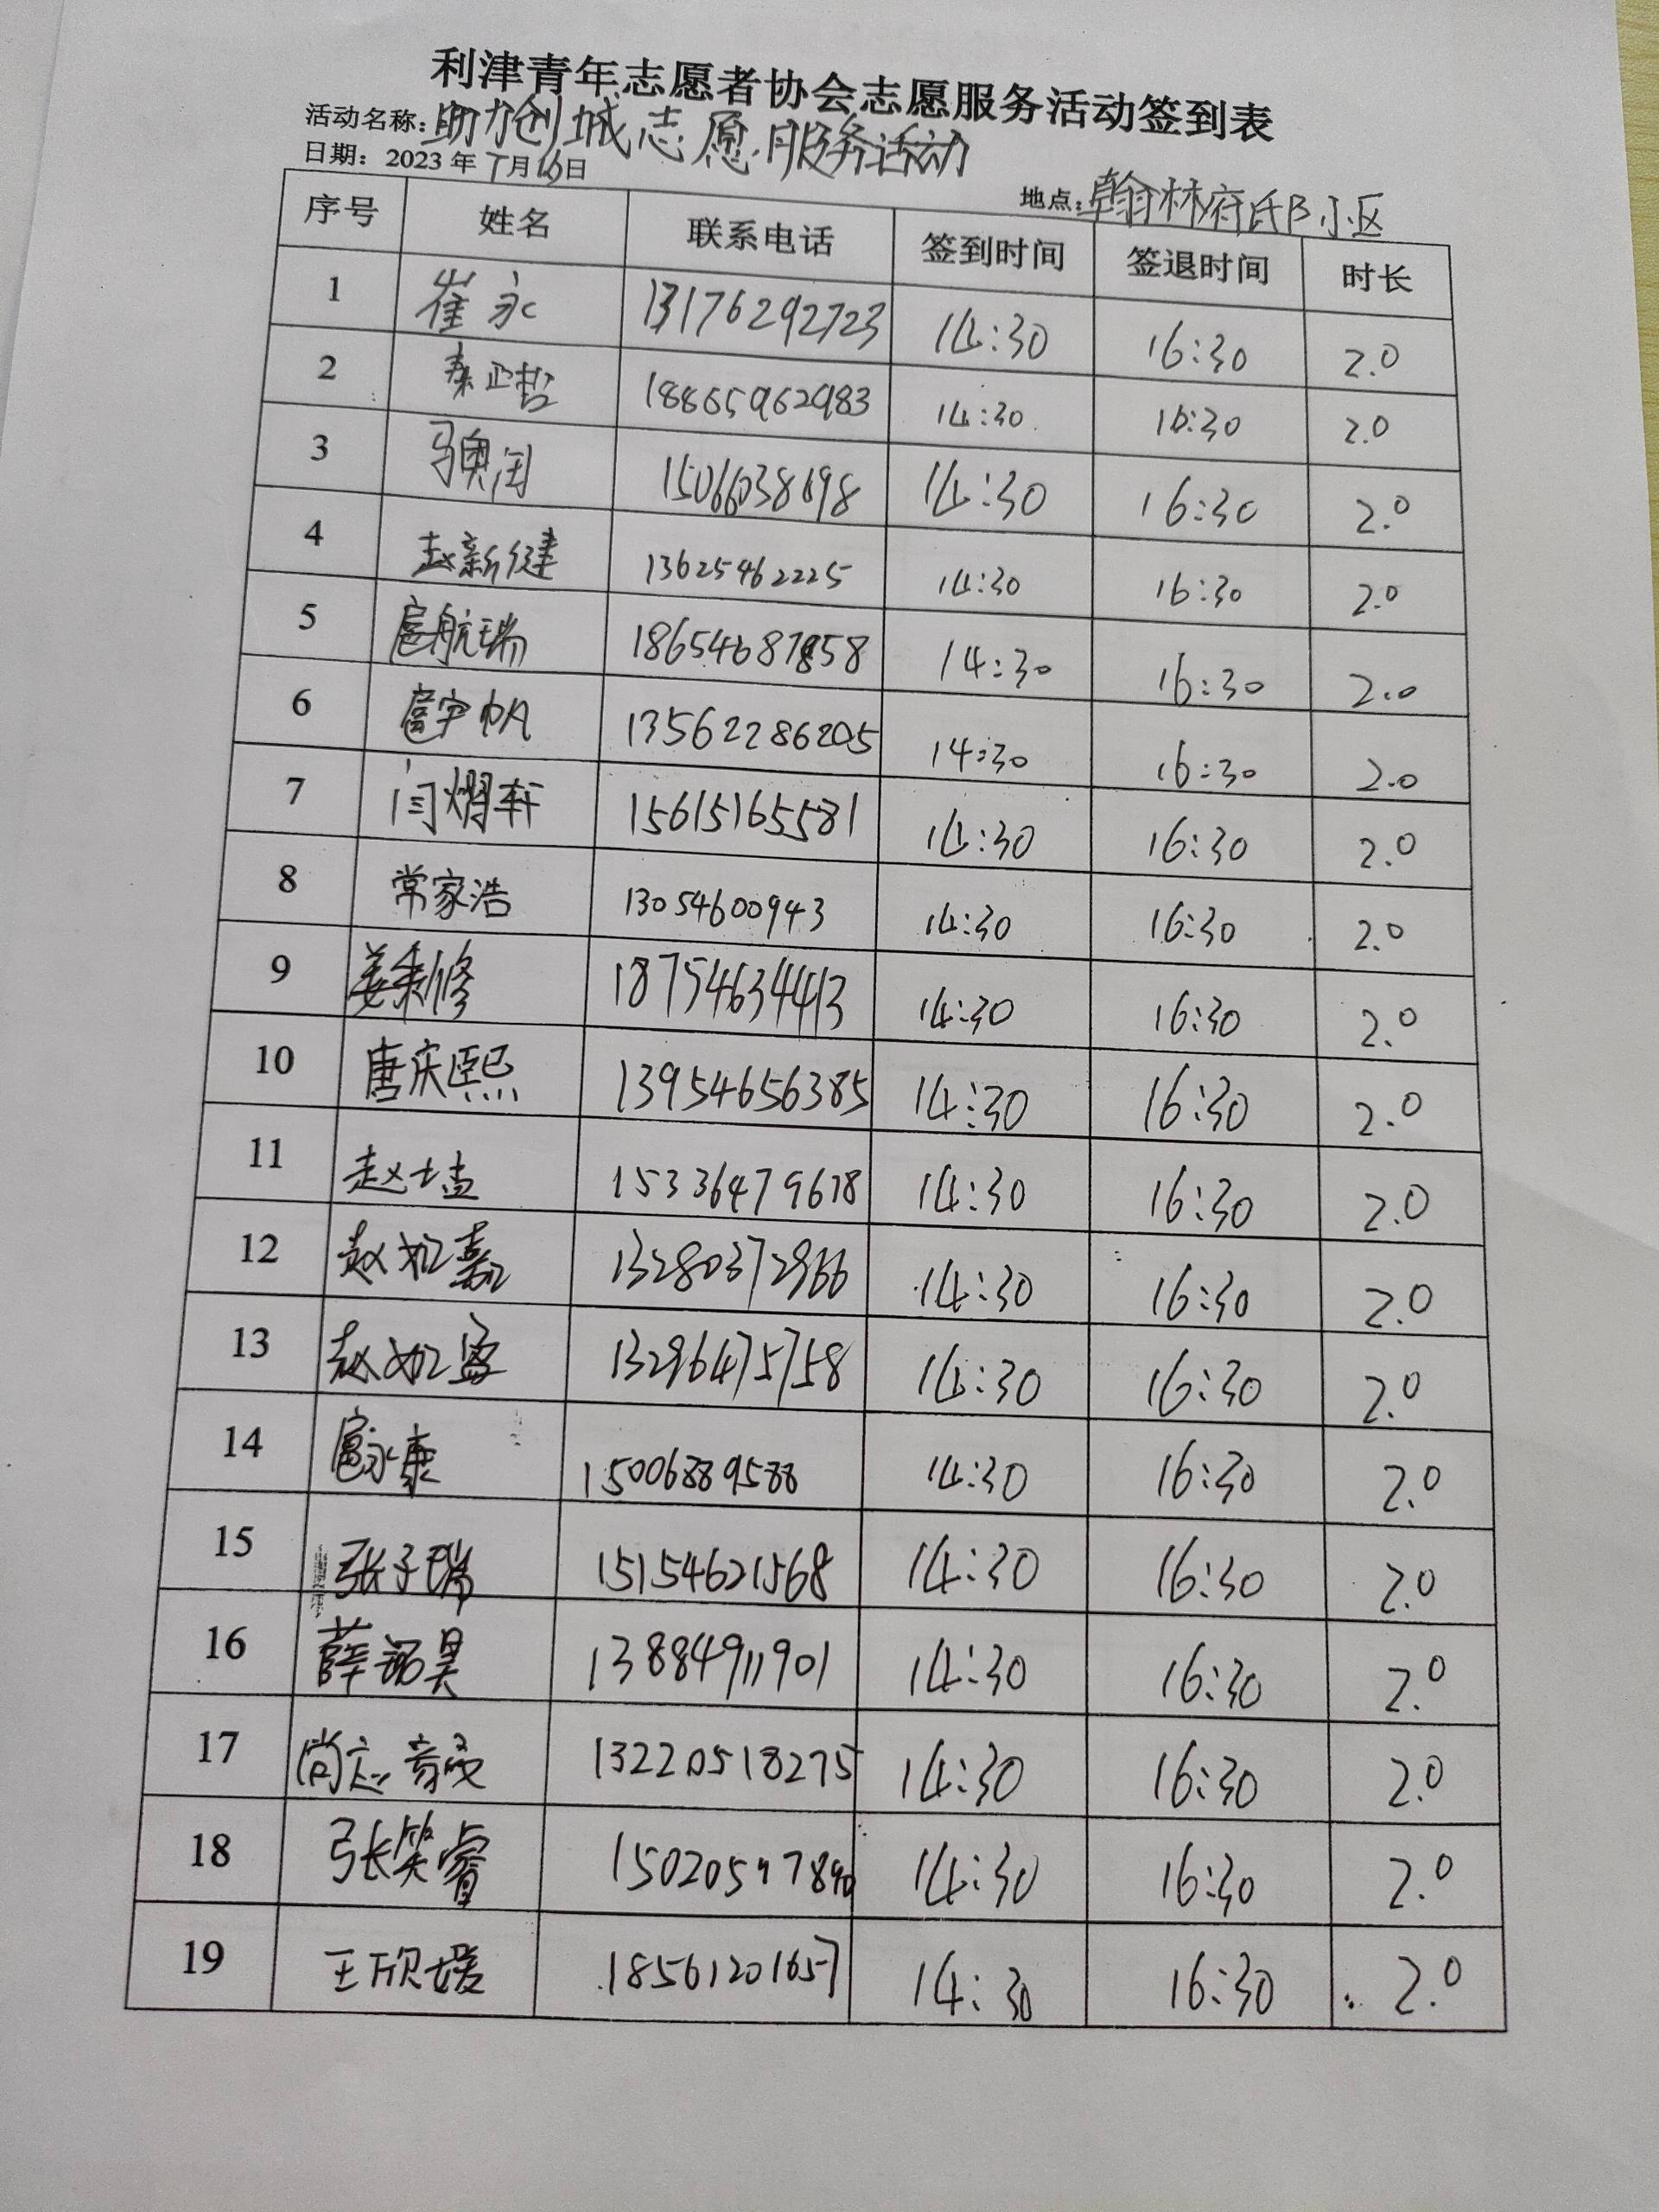 利津青年志愿者协会志愿服务活动签到表
活动名称：助力创城志愿服务活动
日期：2023年 月 日
地点：翰林府邸B小区
序号 姓名 联系电话 签到时间 签退时间 时长
1 崔永 13176292723 14:30 16:30 2.0
2 秦正哲 18865962983 14:30 16:30 2.0
3 马奥闰 15066038698 14:30 16:30 2.0
4 赵新健 13625462225 14:30 16:30 2.0
5 扈航瑞 18654687858 14:30 16:30 2.0
6 扈宇帆 13562286205 14:30 16:30 2.0
7 闫熠轩 15615165581 14:30 16:30 2.0
8 常家浩 13054600943 14:30 16:30 2.0
9 姜秉修 18754634413 14:30 16:30 2.0
10 唐庆熙 13954656385 14:30 16:30 2.0
11 赵 15336479678 14:30 16:30 2.0
12 赵如嘉 13280372966 14:30 16:30 2.0
13 赵如 13296475758 14:30 16:30 2.0
14 扈永康 15006889588 14:30 16:30 2.0
15 张子瑞 15154621568 14:30 16:30 2.0
16 薛昊 13884911901 14:30 16:30 2.0
17 尚志 13220518275 14:30 16:30 2.0
18 张笑睿 15020597890 14:30 16:30 2.0
19 王欣媛 18561201657 14:30 16:30 2.0